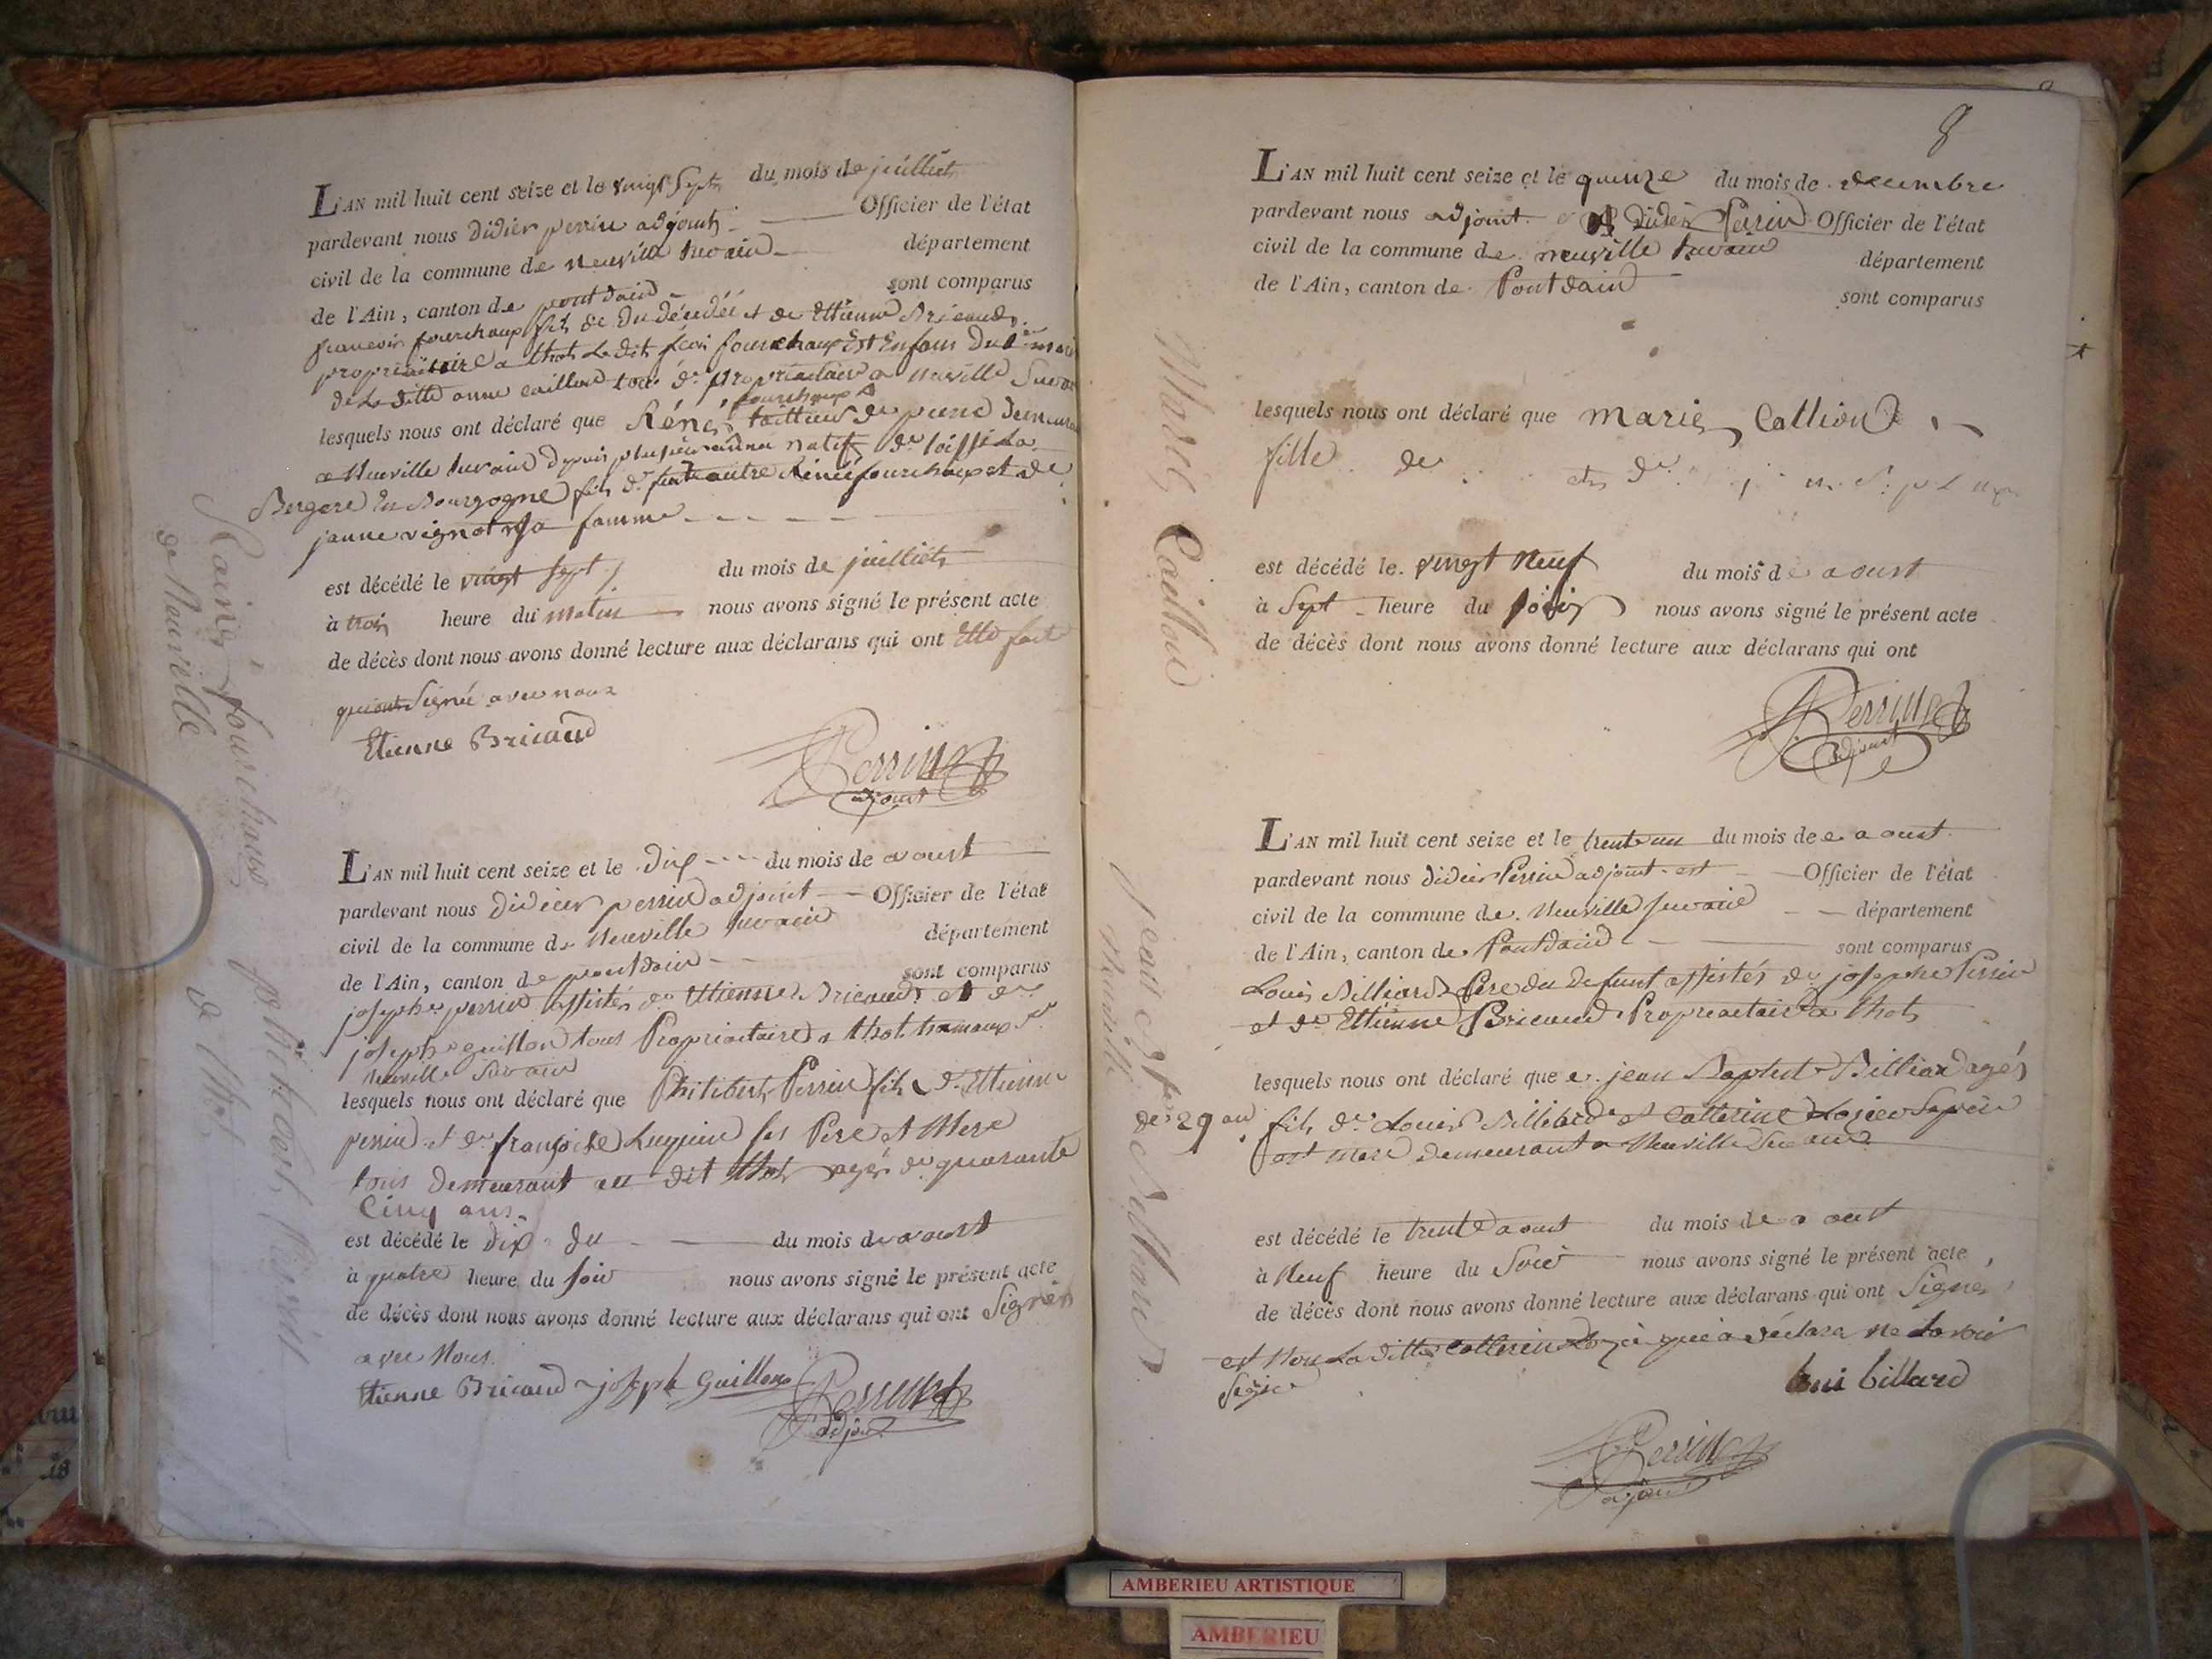 L'AN mil huit cent seize et le vingt Sept du mois de juilliet
pardevant nous didier perrin adjoint Officier de l'état
civil de la commune de neuville surain département
de l'Ain, canton de pont dain sont comparus
fourchaux fils de Du décédéé et de Ettienne Bricaud
propriaitaire a thol Ledit fourchaux Est Enfans Du
de La ditte anne caillon tous de propriaitaire a neuville
fourchaux
lesquels nous ont déclaré que Réné tailleur de pierre demeurant
a Neuville surain Depuis plusieur année natif de
Bergere En Bourgogne fils de autre Réné fourchaux et de
janne vignot Sa famme
est décédé le vingt sept du mois de juilliet
à trois heure du matin nous avons signé le présent acte
de décès dont nous avons donné lecture aux déclarans qui ont
qui ont Signé avec nous
Etienne Bricaud
Perrin
adjoint
Raine fourchaux
de Neuville
L'AN mil huit cent seize et le Dix du mois de aoust
pardevant nous Didier perrin adjoint Officier de l'état
civil de la commune de Neuville surain département
de l'Ain, canton de pontdain sont comparus
josephe perrin assistés de Ettienne Bricaud et de
josephe guillon tous Propriaitaire a thol hameaux de
neuville surain
lesquels nous ont déclaré que Philibert Perrin fils de Ettienne
perrin et de françoise Luquin ses Pere et Mere
tous demeurant au dit thol agés de quarante
Cinq ans
est décédé le dix du du mois de aoust
à quatre heure du soir nous avons signé le présent acte
de décès dont nous avons donné lecture aux déclarans qui ont Signés
avec Nous
Etienne Bricaud joseph Guillon Perrin
adjoint
philibert Perrin
de thol
8
L'AN mil huit cent seize et le quinze du mois de decembre
pardevant nous adjoint didier Perrin Officier de l'état
civil de la commune de neuville surain département
de l'Ain, canton de Pontdain sont comparus
lesquels nous ont déclaré que marie Callion
fille de et de
est décédé le vingt neuf du mois de aoust
à Sept heure du soir nous avons signé le présent acte
de décès dont nous avons donné lecture aux déclarans qui ont
Perrin
adjoint
Marie Caillon
L'AN mil huit cent seize et le trente un du mois de aoust
pardevant nous didier Perrin adjoint est Officier de l'état
civil de la commune de Neuville surain département
de l'Ain, canton de Pontdain sont comparus
Louis Billiard Père du defunt assistés de josephe Perrin
et de Ettienne Bricaud Propriaitaire a thol
lesquels nous ont déclaré que jean Baptiste Billiard agés
de 29 ans fils de Louis Billiard et Catterine Logier Sepère
est mere demeurant a Neuville surain
est décédé le trente aoust du mois de aoust
à Neuf heure du Soir nous avons signé le présent acte
de décès dont nous avons donné lecture aux déclarans qui ont Signés
est Non La ditte Catterine qui a déclaré ne savoir
Signer
Loui billard
Perrin
adjoint
jean Bte Billiard
neuville
AMBERIEU ARTISTIQUE
AMBERIEU